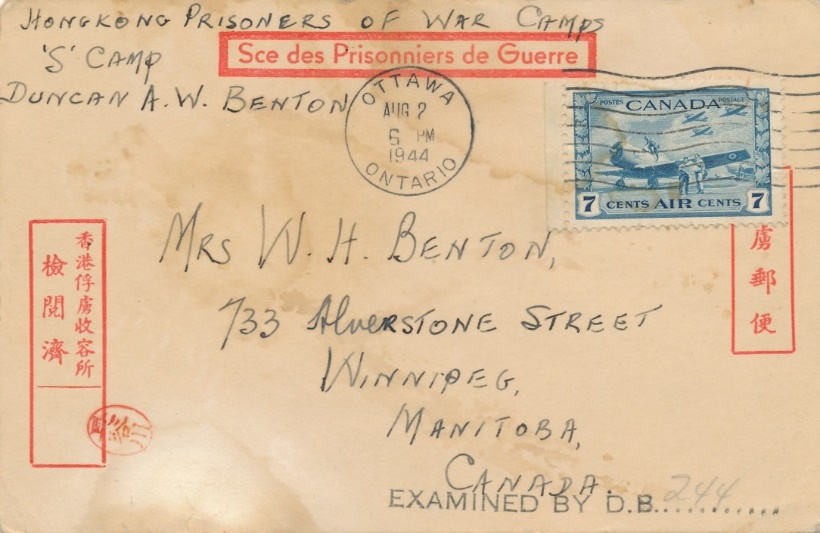 HONGKONG PRISONERS OF WAR CAMPS
'S' CAMP
DUNCAN A.W. BENTON
Sce des Prisonniers de Guerre
OTTAWA
AUG 2
6 PM
1944
ONTARIO
POSTES CANADA POSTAGE
7 CENTS AIR CENTS 7
香港俘虜收容所
檢閲濟
虜郵便
MRS W. H. BENTON,
733 Alverstone STREET
WINNIPEG,
MANITOBA,
CANADA.
EXAMINED BY D.B. 244